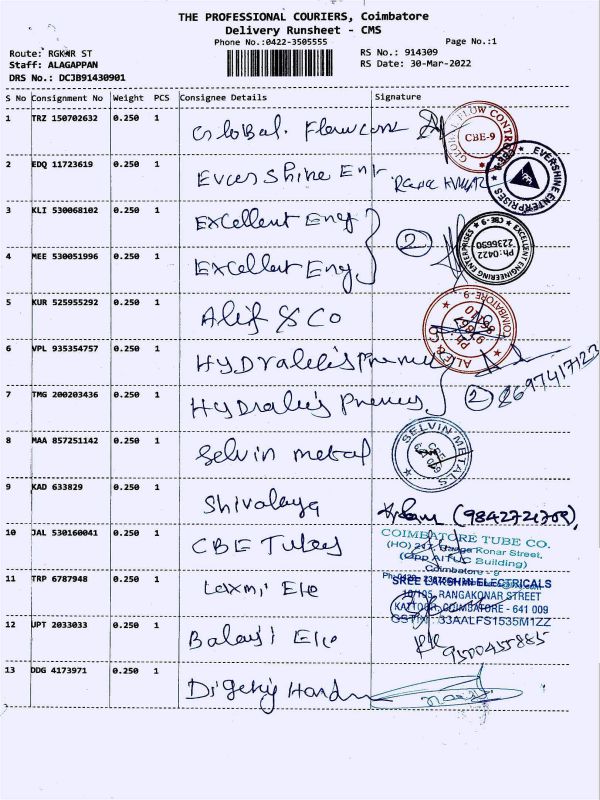 THE PROFESSIONAL COURIERS, Coimbatore
Delivery Runsheet - CMS
Phone No.:0422-3505555
Page No.:1
Route: RGKNR ST
RS No.: 914309
Staff: ALAGAPPAN
RS Date: 30-Mar-2022
DRS No.: DCJB91430901
S No Consignment No Weight PCS Consignee Details Signature
1 TRZ 150702632 0.250 1 Global. Flow
GLOBAL FLOW CONTROL CBE-9
2 EDQ 11723619 0.250 1 Ever Shine Ent
EVERSHINE ENTERPRISES CBE-9
3 KLI 530068102 0.250 1 Excellent Eng
2
EXCELLENT ENGINEERING ENTERPRISES CBE-9 Ph:0422 2236690
4 MEE 530051996 0.250 1 Excellent Eng
5 KUR 525955292 0.250 1 Alif & Co
ALIF & CO COIMBATORE-9
6 VPL 935354757 0.250 1
7 TMG 200203436 0.250 1
2 8697417123
8 MAA 857251142 0.250 1 Selvin metal
SELVIN METALS
9 KAD 633829 0.250 1 Shivalaya
(9842721709),
10 JAL 530160041 0.250 1 CBE Tubes
COIMBATORE TUBE CO.
(HO) Ranga Konar Street,
(Opp AITUC Building)
Coimbatore - 9
11 TRP 6787948 0.250 1 Laxmi Ele
SREE LAKSHMI ELECTRICALS
10/195, RANGAKONAR STREET
KATTOOR, COIMBATORE - 641 009
GSTIN : 33AALFS1535M1ZZ
12 UPT 2033033 0.250 1 Balaji Ele
9500455885
13 DDG 4173971 0.250 1